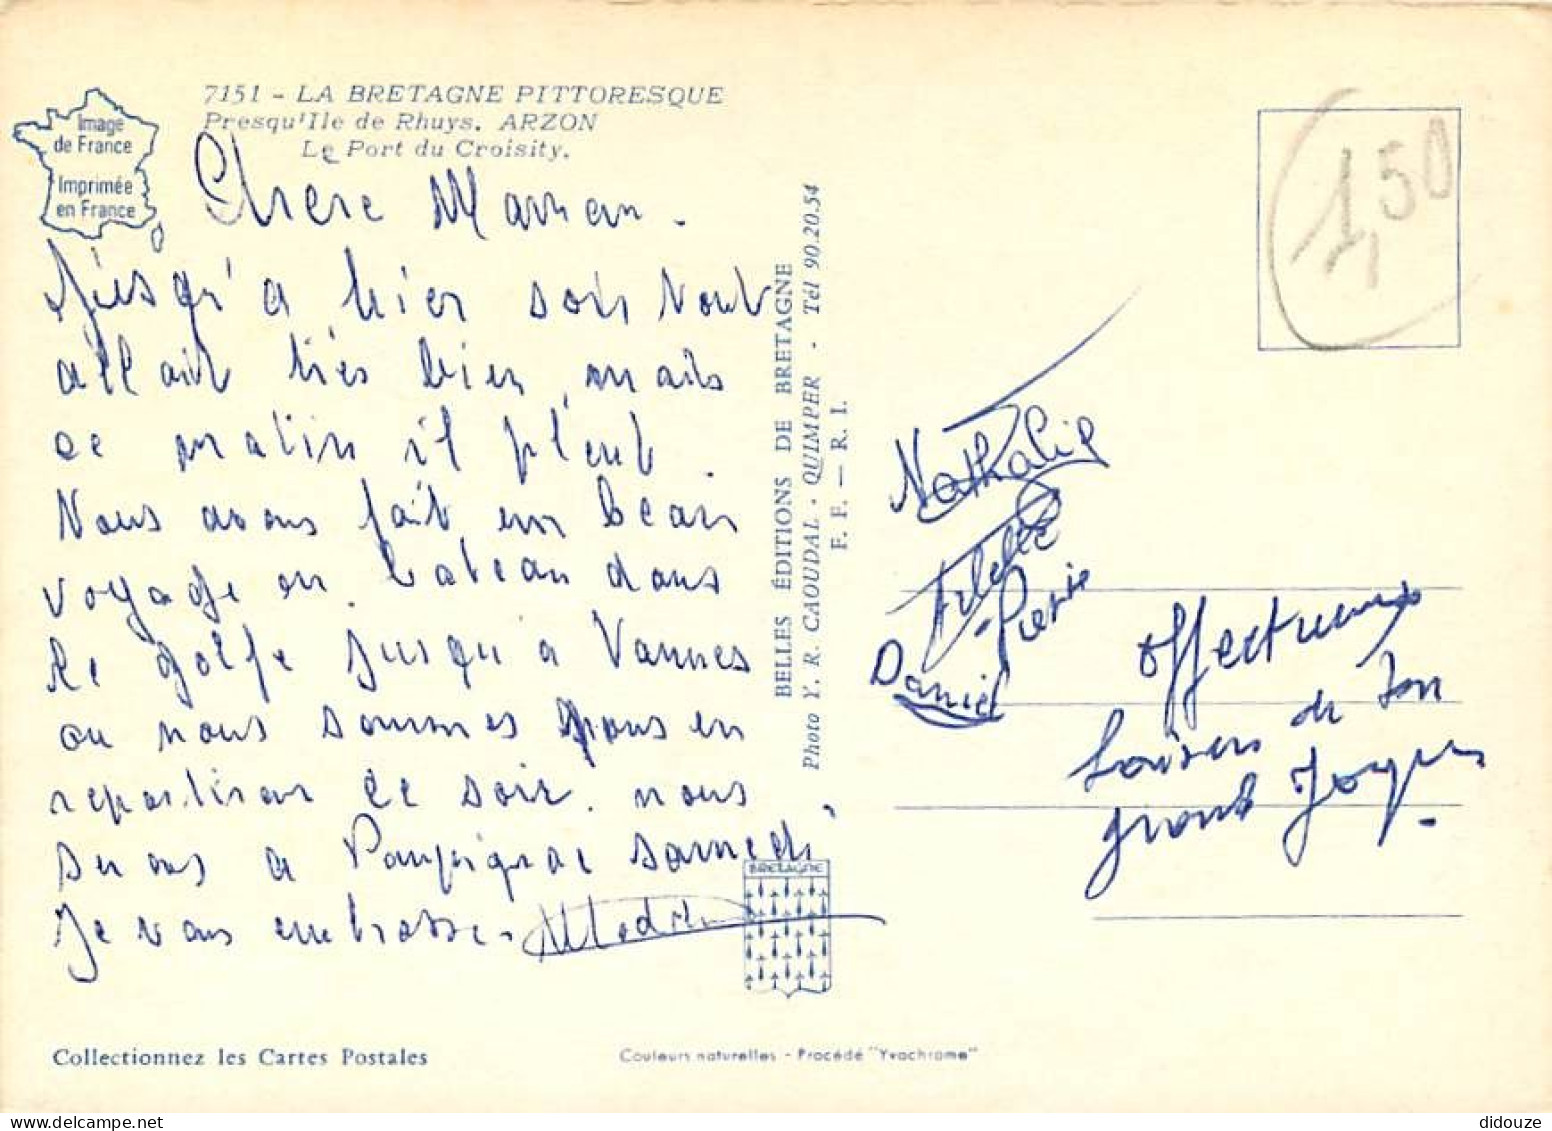 7151 - LA BRETAGNE PITTORESQUE
Presqu'Ile de Rhuys. ARZON
Le Port du Croisity.
Image
de France
Imprimée
en France
1,50
Chère Maman.
Jusqu'a hier soir tout
allait très bien, mais
ce matin il pleut.
Nous avons fait un beau
voyage en bateau dans
le golfe jusqu'a Vannes
ou nous sommes nous en
repartirons ce soir. nous
serons a Pompignac samedi.
Je vous embrasse.
BELLES ÉDITIONS DE BRETAGNE
Photo Y. R. CAOUDAL - QUIMPER - Tél 90.20.54
F. F. — R. I.
Nathalie
Arlette
Pierre
Daniel
affectueux
baisers de ton
grand
BRETAGNE
Collectionnez les Cartes Postales
Couleurs naturelles - Procédé "Yvochrome"
didouze